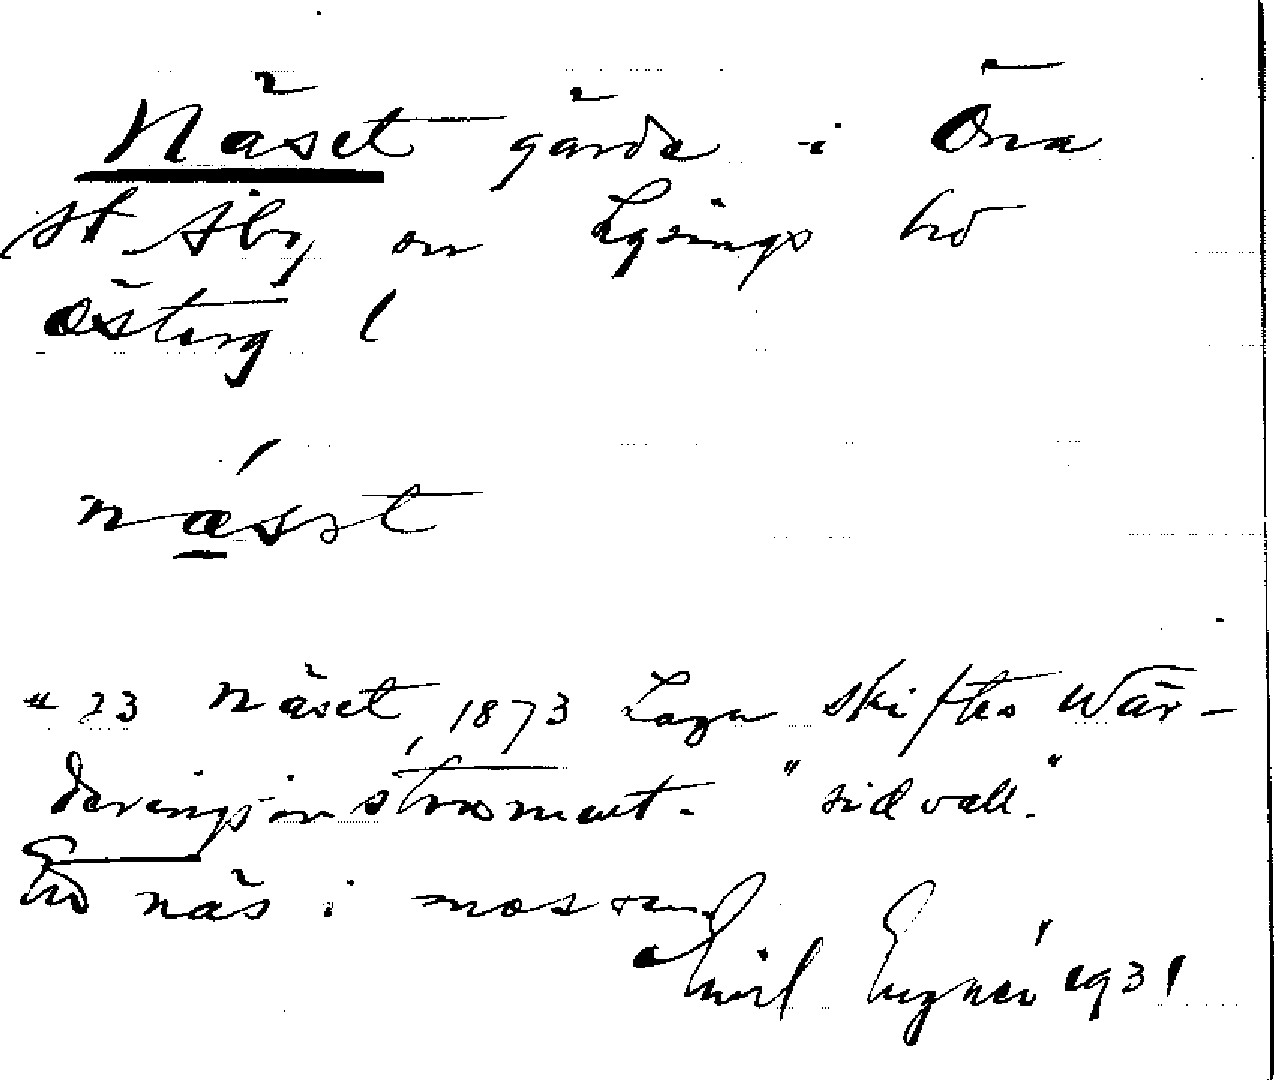 Näset gärde i Öna
st Åby sn Lysings hd
Österg (
nässt
" 23 Näset, 1873 Laga skiftes Wär-
deringsinstrument. "sidvall."
Ett näs i mossen
Emil Engnér 1931